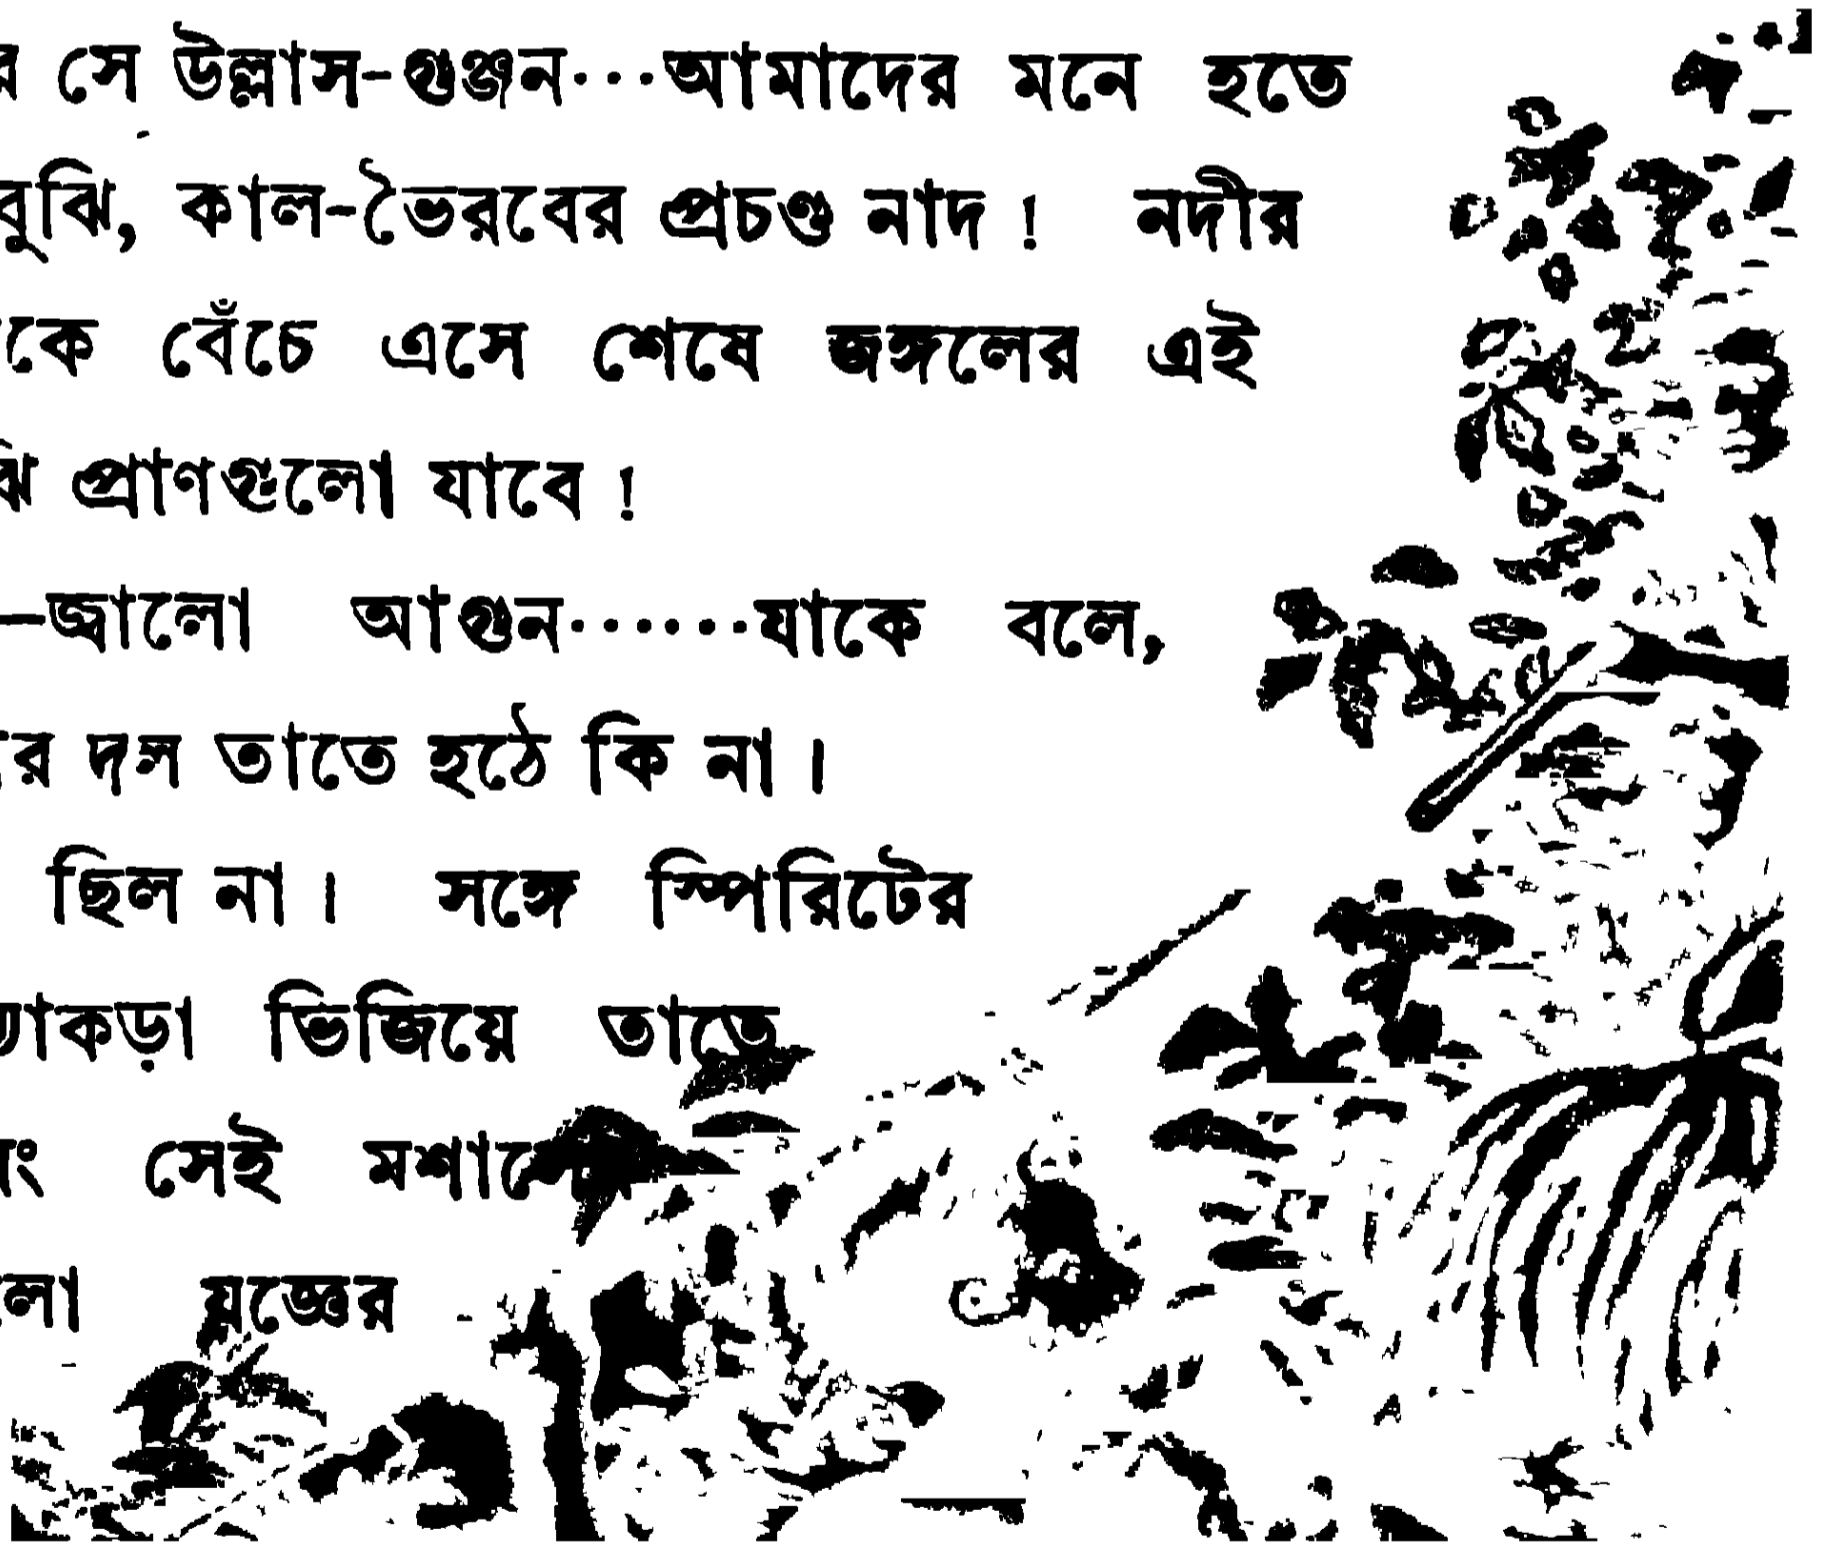 র সে উল্লাস-গুঞ্জন···আমাদের মনে হতে
বুঝি, কাল-ভৈরবের প্রচণ্ড নাদ ! নদীর
কে বেঁচে এসে শেষে জঙ্গলের এই
ঝি প্রাণগুলো যাবে !
—জ্বালো আগুন······যাকে বলে,
র দল তাতে হঠে কি না ।
ছিল না । সঙ্গে স্পিরিটের
াকড়া ভিজিয়ে তাতে
ং সেই
লো যজ্ঞের